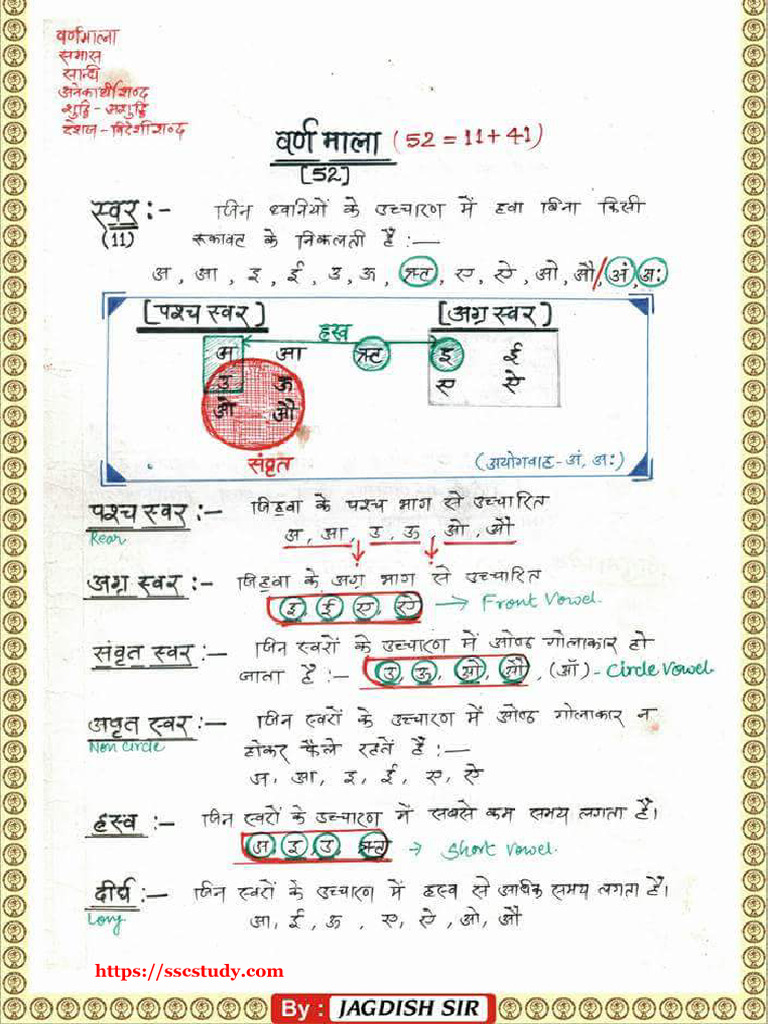 वर्णमाला
समास
सान्धि
अनेकार्थी शब्द
शुद्धि - अशुद्धि
देशज - विदेशी शब्द
वर्ण माला (52 = 11 + 41)
[52]
स्वर :- जिन ध्वनियों के उच्चारण में हवा बिना किसी
(11) रूकावट के निकलती है :—
अ, आ, इ, ई, उ, ऊ, ऋ, ए, ऐ, ओ, औ / अं, अः
[पश्च स्वर] [अग्र स्वर]
ह्रस्व
अ आ ऋ इ ई
उ ऊ ए ऐ
ओ औ
संवृत (अयोगवाह - अं, अः)
पश्च स्वर :- जिहवा के पश्च भाग से उच्चारित
Rear अ, आ, उ, ऊ, ओ, औ
अग्र स्वर :- जिहवा के अग्र भाग से उच्चारित
इ, ई, ए, ऐ → Front Vowel.
संवृत स्वर :- जिन स्वरों के उच्चारण में ओष्ठ गोलाकार हो
जाता है :- उ, ऊ, ओ, औ, (ऑ) - Circle Vowel
अवृत स्वर :- जिन स्वरों के उच्चारण में ओष्ठ गोलाकार न
Non Circle होकर फैले रहतें है :—
अ, आ, इ, ई, ए, ऐ
ह्रस्व :- जिन स्वरों के उच्चारण में सबसे कम समय लगता है।
अ, इ, उ, ऋ → Short Vowel.
दीर्घ :- जिन स्वरों के उच्चारण में ह्रस्व से अधिक समय लगता है।
Long आ, ई, ऊ, ए, ऐ, ओ, औ
https://sscstudy.com
By : JAGDISH SIR